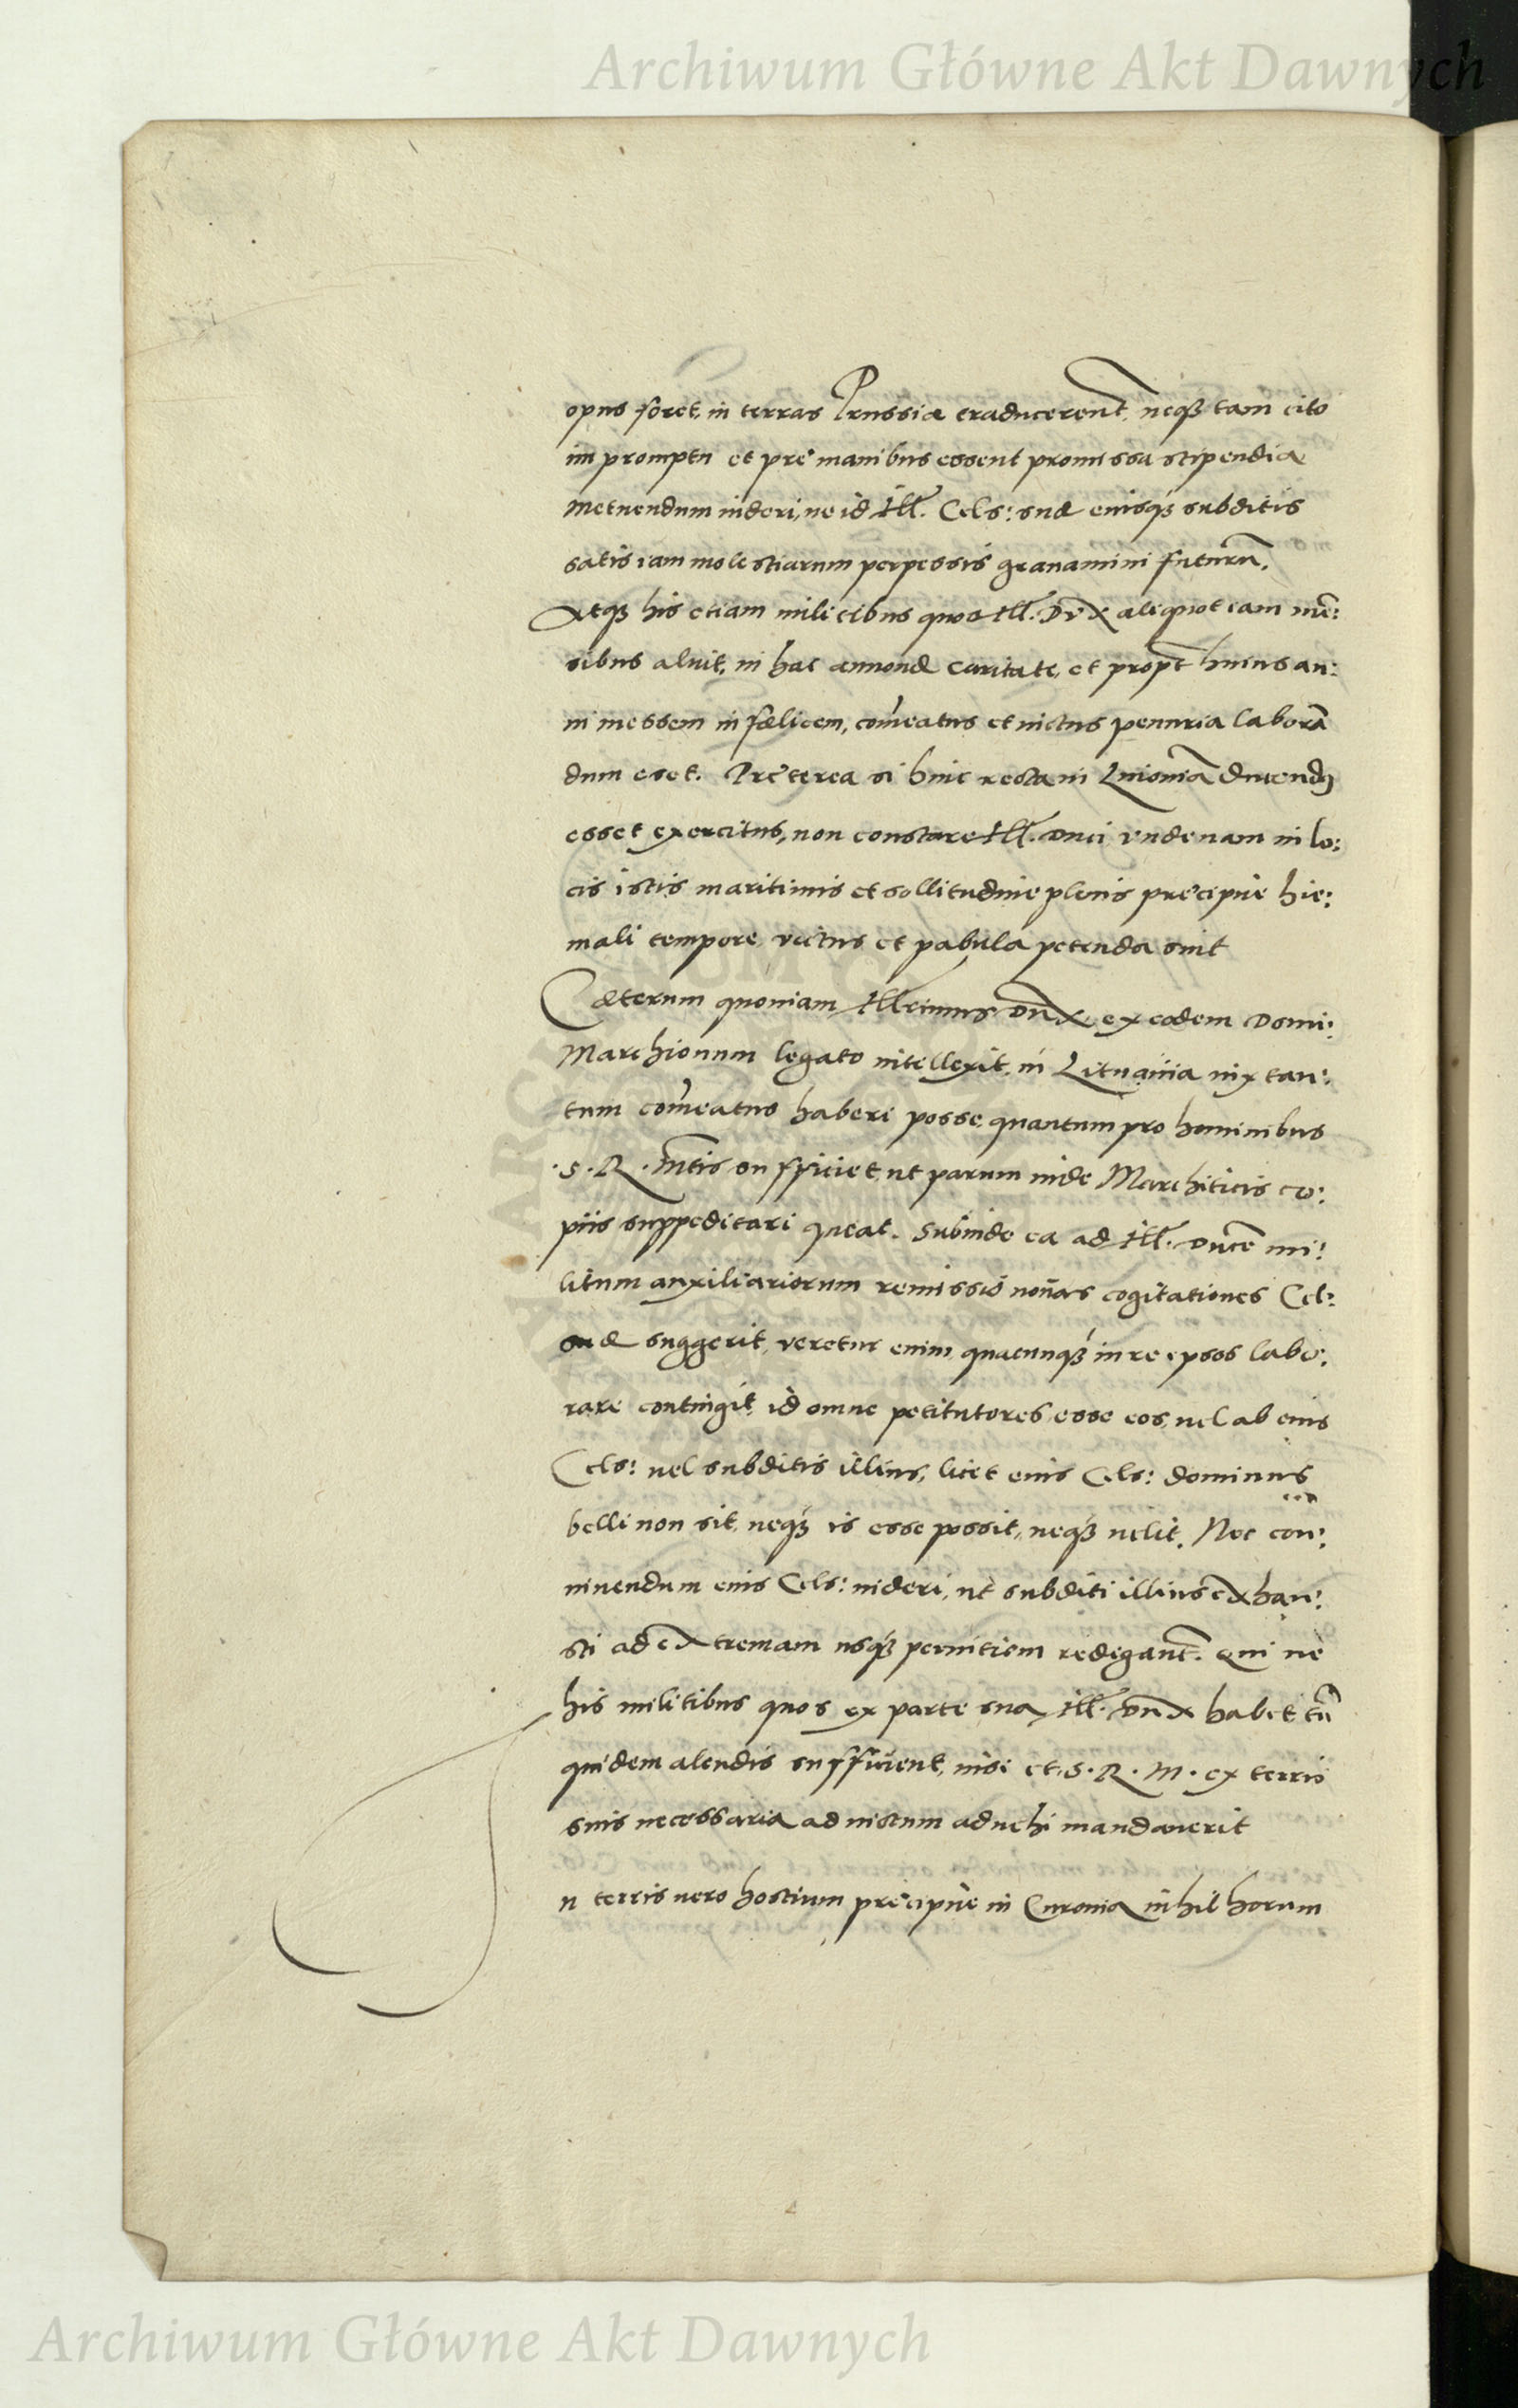 Archiwum Główne Akt Dawnych
opus foret, in terras Prussiæ traducerent, neq3 tam cito
in promptu et præ manibus essent promissa stipendia
metuendum uideri, ne id Ill. Cels: suæ eiusq3 subditis
satis iam molestiarum perpessis grauamini futurū.
Atq3 his etiam militibus quos Ill. Dux aliquot iam mē:
sibus aluit, in hac annonæ caritate, et propt huius an:
ni messem infœlicem, com̄eatus et uictus penuria laborā
dum esset. Præterea si hinc recta in Liuoniā ducendq
esset exercitus, non constare Ill. Duci undenam in lo:
cis istis maritimis et sollitudine plenis præcipue hie:
mali tempore, uictus et pabula petenda sint
Cæterum quoniam Illrimus Dux, ex eodem Domi:
Marchionum legato intellexit, in Lituania uix tan:
tum com̄eatus haberi posse, quantum pro hominibus
.S.R. Mtis sufficiet, ut parum inde Marchiticis co:
piis suppeditari queat. Subinde ea ad Ill. Ducē mi:
litum auxiliariorum remissio nou̅as cogitationes Cel:
suæ suggerit, ueretur enim, quacunq3 in re ipsos labo:
rare contingit, id omne petituros esse eos, uel ab eius
Cels: uel subditis illius, licet eius Cels: dominus
belli non sit, neq3 is esse possit, neq3 uelit. Nec con:
niuendum eius Cels: uideri, ut subditi illius exhau:
sti ad extremam usq3 pernitiem redigant. Qui ne
his militibus quos ex parte sua Ill. Dux habet tū
quidem alendis sufficient, nisi et .S.R.M. ex terris
suis necessaria ad uictum aduehi mandauerit
n terris uero hostium præcipue in Curonia nihil horum
Archiwum Główne Akt Dawnych